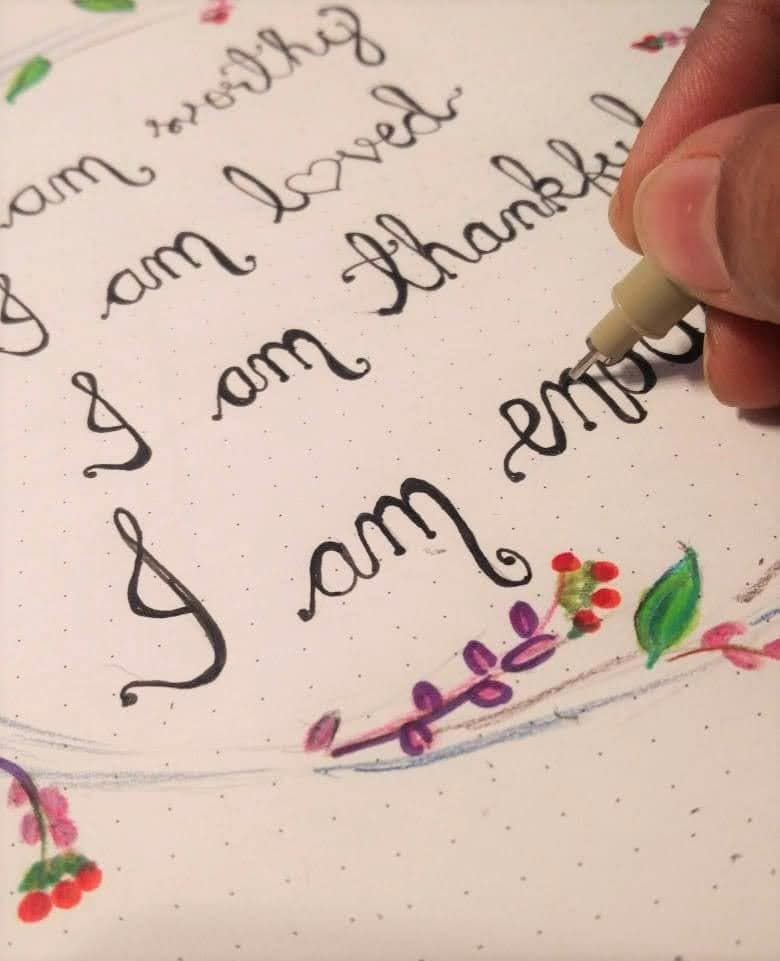 am worthy
I am loved
I am thankful
I am enou